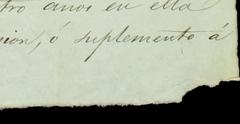 tro anos en ella
nion, ó suplemento á